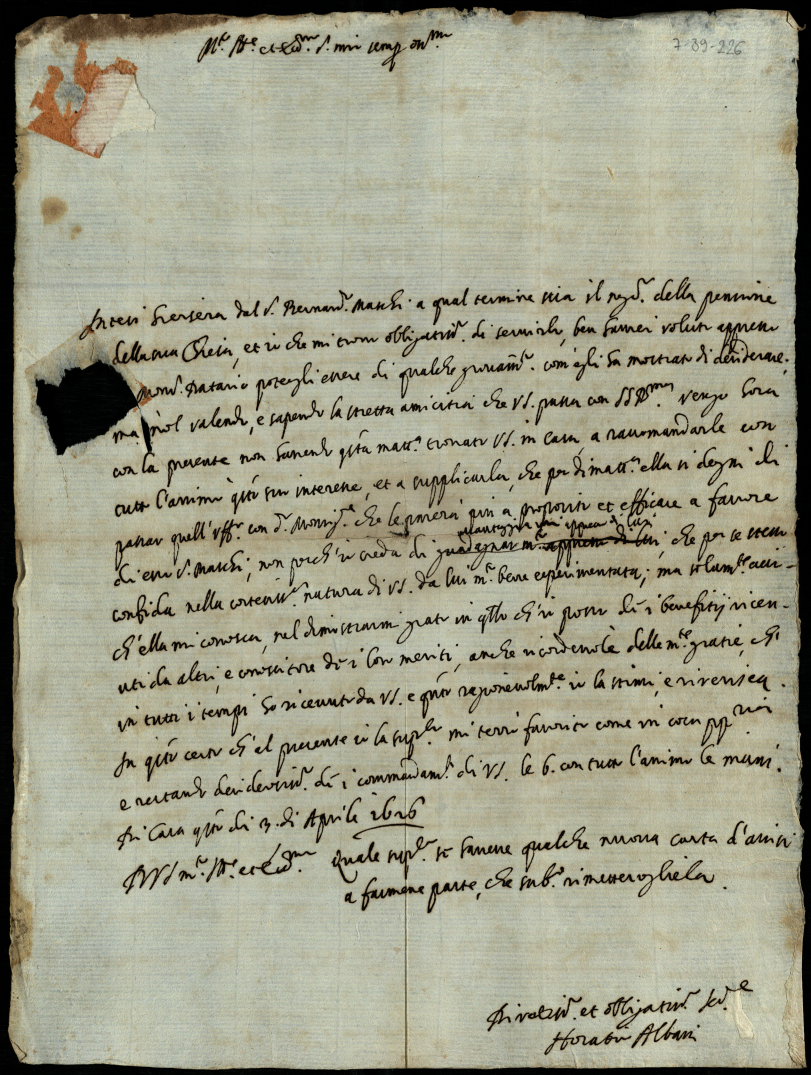 7-39-226
M.to Ill.e et Ecc.mo S.r mio semp. oss.mo
Intesi hiersera dal S.r Bernard.o Maschi a qual termine stia il neg.o della pensione
della sua Chiesa, et io che mi trovo obligatiss.o di servirlo, ben havrei voluto appresso
Mons.r Datario potergli essere di qualche giovam.to com'egli ha mostrato di desiderare,
ma nol valendo, e sapendo la stretta amicitia che VS. passa con SS. Ill.ma vengo hora
con la presente non havendo q.sta matt.a trovato VS. in casa, a raccomandarle con
tutto l'animo q.sto suo interesse, et a supplicarla, che per dimatt.a ella si degni di
passar quell'uff.o con d.o Monsig.re che le parerà più a proposito et efficace a favore
di esso S.r Maschi, non perch'io creda di avantaggiar miei appresso di lui, che per se stesso
confida nella cortesiss.a natura di VS. da lui m.to bene esperimentata; ma solam.te acciò
ch'ella mi conosca, nel dimostrarmi grato in q.llo ch'io posso de i benefitij rice-
vuti da altri, e conoscitore de i loro meriti, anche ricordevole delle m.te gratie, ch'
in tutti i tempi ho ricevute da VS. e q.nto ragionevolm.te io la stimi, e riverisca.
In q.sto certo ch'al presente io la supp.co mi terrò favorito come in cosa pp.ria mia
e restando desiderosiss.o de i commandam.ti di VS. le b. con tutto l'animo le mani.
Di Casa q.sto dì 3. di Aprile 1626
Di VS m.to Ill.e et Ecc.ma
Quale supp.co se havesse qualche nuova carta d'avisi
a farmene parte, che sub.o rimetterogliela.
Divotiss.o et obligatiss.o ser.re
Horatio Albani